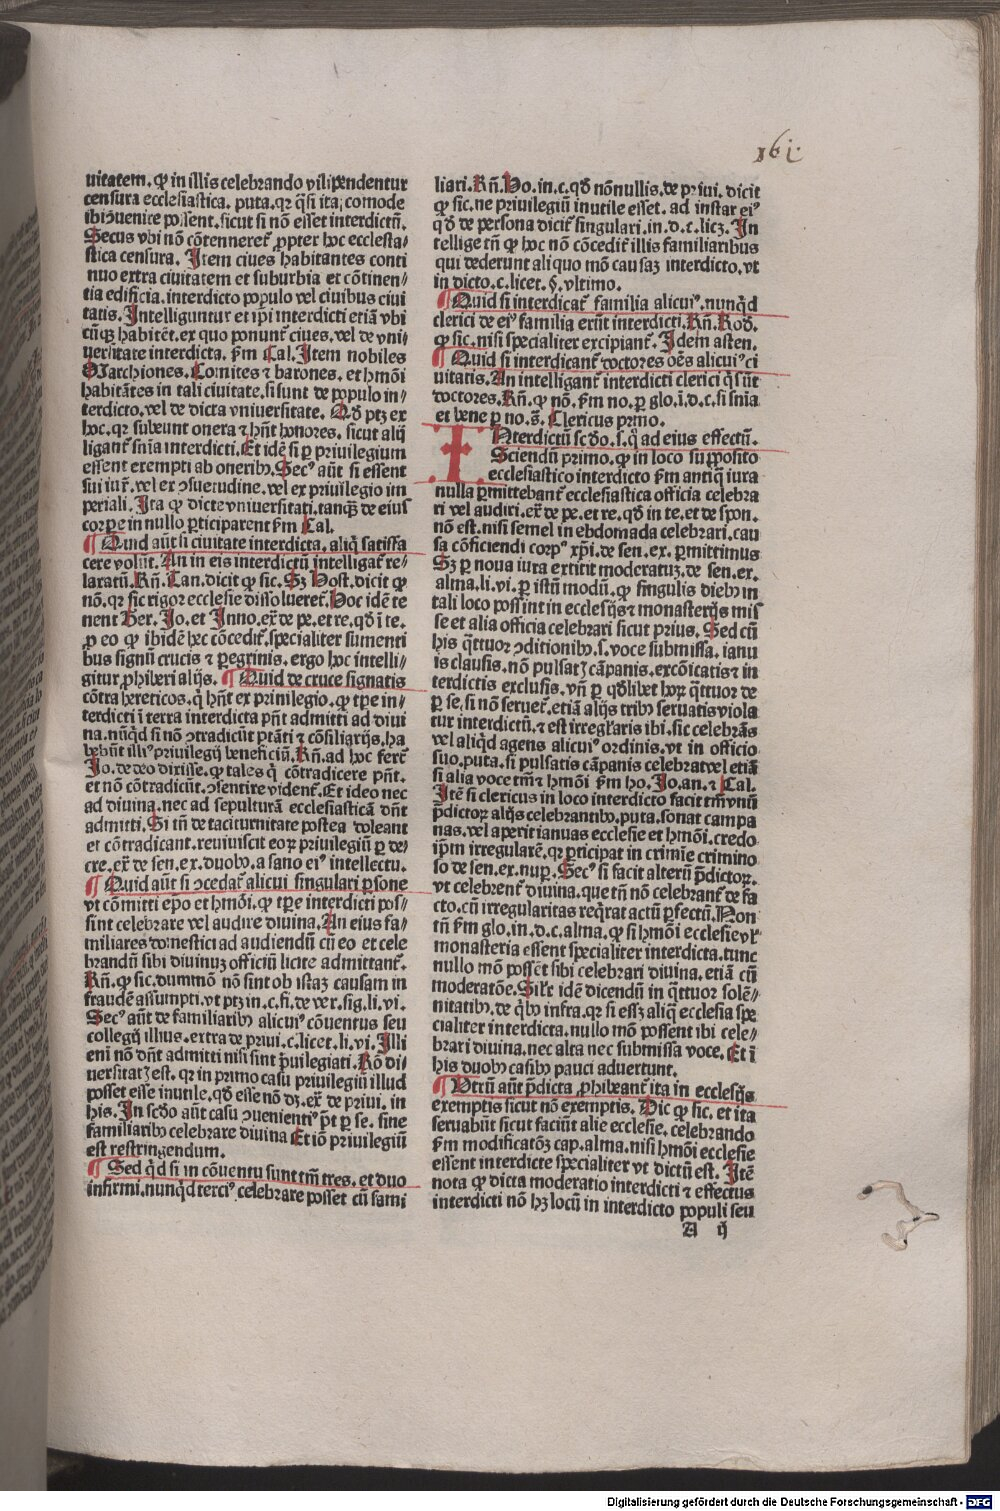 161
uitatem. qꝛ in illis celebrando vilipendentur
censura ecclesiastica. puta. qꝛ qͥsi ita; comode
ibi ꝯuenire possent. sicut si nō esset interdictū.
Secus vbi nō cōtenneret᷑ ꝓpter hoc ecclesia⸗
stica censura. Item ciues habitantes conti
nuo extra ciuitatem et suburbia et cōtinen⸗
tia edificia. interdicto populo vel ciuibus ciui
tatis. Intelliguntur et ip̄i interdicti etiā vbi
cūqꝫ habitēt. ex quo ponunt᷑ ciues. vel de vni⸗
uersitate interdicta. ẜm Cal. Item nobiles
Marchiones. Comites ⁊ barones. et hmōi
habitātes in tali ciuitate. si sunt de populo in⸗
terdicto. vel de dicta vniuersitate. Qd̓ ptꝫ ex
hoc. qꝛ subeunt onera ⁊ hn̄t honores. sicut aliqͥ
ligant᷑ sn̄ia interdicti. Et idē si ꝑ priuilegium
essent exempti ab oneribꝫ. Secꝰ aūt si essent
sui iur̄. vel ex ꝯsuetudine. vel ex priuilegio im
periali. Ita ꝙ dicte vniuersitati. tanqꝫ de eius
corpore in nullo ꝑticiparent ẜm Cal.
¶ Quid aūt si ciuitate interdicta. aliqͥ satisfa
cere volūt. An in eis interdictū intelligat᷑ re⸗
laxatū. Rn̄. Can. dicit ꝙ sic. Sꝫ Host. dicit ꝙ
nō. qꝛ sic rigor ecclesie dissolueret᷑. Hoc idē te
nent Ber. Jo. et Inno. ex̄ de pe. et re. qd̓ ī te.
ꝓ eo ꝙ ibidē hec cōcedit᷑. specialiter sumenti
bus signū crucis ⁊ peregrinis. ergo hoc intelli⸗
gitur ꝓhiberi alijs. ¶ Quid de cruce signatis
cōtra hereticos. qͥ hn̄t ex priuilegio. ꝙ tꝑe in⸗
terdicti ī terra interdicta pn̄t admitti ad diui
na. nūqͥd si nō ꝯtradicūt ptāti ⁊ cōsiliarijs. ha
bebūt illiꝰ priuilegij beneficiū. Rn̄. ad hoc fert᷑
Jo. de deo dixisse. ꝙ tales qͥ cōtradicere pn̄t.
et nō cōtradicūt. ꝯsentire vident᷑. Et ideo nec
ad diuina. nec ad sepulturā ecclesiasticā dn̄t
admitti. Si tn̄ de taciturnitate postea doleant
et cōtradicant. reuiuiscit eoꝝ priuilegiū ꝑ de⸗
cre. ex̄ de sen. ex. duobꝫ. a sano eiꝰ intellectu.
¶ Quid aūt si ꝯcedat᷑ alicui singulari ꝑsone
vt cōmitti ep̄o et hmōi. ꝙ tꝑe interdicti pos⸗
sint celebrare vel audire diuina. An eius fa⸗
miliares domestici ad audiendū cū eo et cele
brandū sibi diuinuꝫ officiū licite admittant᷑.
Rn̄. ꝙ sic. dummō nō sint ob istaꝫ causam in
fraudē assumpti. vt ptꝫ in c. fi. de ver. sig. li. vi.
Secꝰ aūt de familiaribꝫ alicuiꝰ cōuentus seu
collegij illius. extra de priui. c. licet. li. vi. Illi
eni nō dn̄t admitti nisi sint p̄uilegiati. Rō di⸗
uersitatꝭ est. qꝛ in primo casu priuilegiū illud
posset esse inutile. qd̓ esse nō dꝫ. ex̄ de priui. in
his. In scd̓o aūt casu ꝯuenientiꝰ pt̄ ꝑ se. sine
familiaribꝫ celebrare diuina Et iō priuilegiū
est restringendum.
¶ Sed qͥd si in cōuentu sunt tm̄ tres. et duo
infirmi. nunqͥd terciꝰ celebrare posset cū fami
liari. Rn̄. Ho. in. c. qd̓ nōnullis. de priui. dicit
ꝙ sic. ne priuilegiū inutile esset. ad instar eiꝰ
qd̓ de persona dicit᷑ singulari. in. d. c. licꝫ. In
tellige tn̄ ꝙ hoc nō cōcedit᷑ illis familiaribus
qui dederunt aliquo mō causaꝫ interdicto. vt
in dicto. c. licet. §. vltimo.
¶ Quid si interdicat᷑ familia alicuiꝰ. nunqͥd
clerici de eiꝰ familia erūt interdicti. Rn̄. Rod̓.
ꝙ sic. nisi specialiter excipiant᷑. Idem asten.
¶ Quid si interdicant᷑ doctores oēs alicuiꝰ ci
uitatis. An intelligant᷑ interdicti clerici qͥ sūt
doctores. Rn̄. ꝙ nō. ẜm no. ꝑ glo. ī. d. c. si sn̄ia
et bene ꝑ no. s̄. Clericus primo.
INterdictū scd̓o. s. qͦ ad eius effectū.
Sciendū primo. ꝙ in loco supposito
ecclesiastico interdicto ẜm antiqͣ iura
nulla ꝑmittebant᷑ ecclesiastica officia celebra
ri vel audiri. ex̄ de pe. et re. qd̓ in te. et de spon.
nō est. nisi semel in ebdomada celebrari. cau
sa cōficiendi corpꝰ xp̄i. de sen. ex. ꝑmittimus
Sꝫ ꝑ noua iura extitit moderatuꝫ. de sen. ex.
alma. li. vi. ꝑ istū modū. ꝙ singulis diebꝫ in
tali loco possint in ecclesijs ⁊ monasterijs mis
se et alia officia celebrari sicut prius. Sed cū
his qͣttuor ꝯditionibꝫ. s. voce submissa. ianu
is clausis. nō pulsatꝭ cāpanis. excōicatis ⁊ in
terdictis exclusis. vn̄ ꝑ qd̓libet hoꝝ qͣttuor de
ꝑ se. si nō seruet᷑. etiā alijs tribꝫ seruatis viola
tur interdictū. ⁊ est irregl̓aris ibi. sic celebrās
vel aliqͥd agens alicuiꝰ ordinis. vt in officio
suo. puta. si pulsatis cāpanis celebrat vel etiā
si alia voce tm̄ ⁊ hmōi ẜm ho. Jo. an. ⁊ Cal.
Itē si clericus in loco interdicto facit tm̄ vnū
p̄dictoꝝ alijs celebrantibꝫ. puta. sonat campa
nas. vel aperit ianuas ecclesie et hmōi. credo
ip̄m irregularē. qꝛ ꝑticipat in crimīe crimino
so de sen. ex. nuꝑ. Secꝰ si facit alterū p̄dictoꝝ.
vt celebrent᷑ diuina. que tn̄ nō celebrant᷑ de fa
cto. cū irregularitas reqͥrat actū ꝑfectū. Non
tn̄ ẜm glo. in. d. c. alma. ꝙ si hmōi ecclesie vl̓
monasteria essent specialiter interdicta. tunc
nullo mō possēt sibi celebrari diuina. etiā cū
moderatōe. Silr̄ idē dicendū in qͣttuor solē⸗
nitatibꝫ. de qͥbꝫ infra. qꝛ si essꝫ aliqͣ ecclesia spe
cialiter interdicta. nullo mō possent ibi cele⸗
brari diuina. nec alta nec submissa voce. Et ī
his duobꝫ casibꝫ pauci aduertunt.
¶ Vtrū aūt p̄dicta ꝓhibeant᷑ ita in ecclesijs
exemptis sicut nō exemptis. Dic ꝙ sic. et ita
seruabūt sicut faciūt alie ecclesie. celebrando
ẜm modificatōꝫ cap. alma. nisi hmōi ecclesie
essent interdicte specialiter vt dictū est. Itē
nota ꝙ dicta moderatio interdicti ⁊ effectus
interdicti nō hꝫ locū in interdicto populi seu
A ij
Digitalisierung gefördert durch die Deutsche Forschungsgemeinschaft - DFG